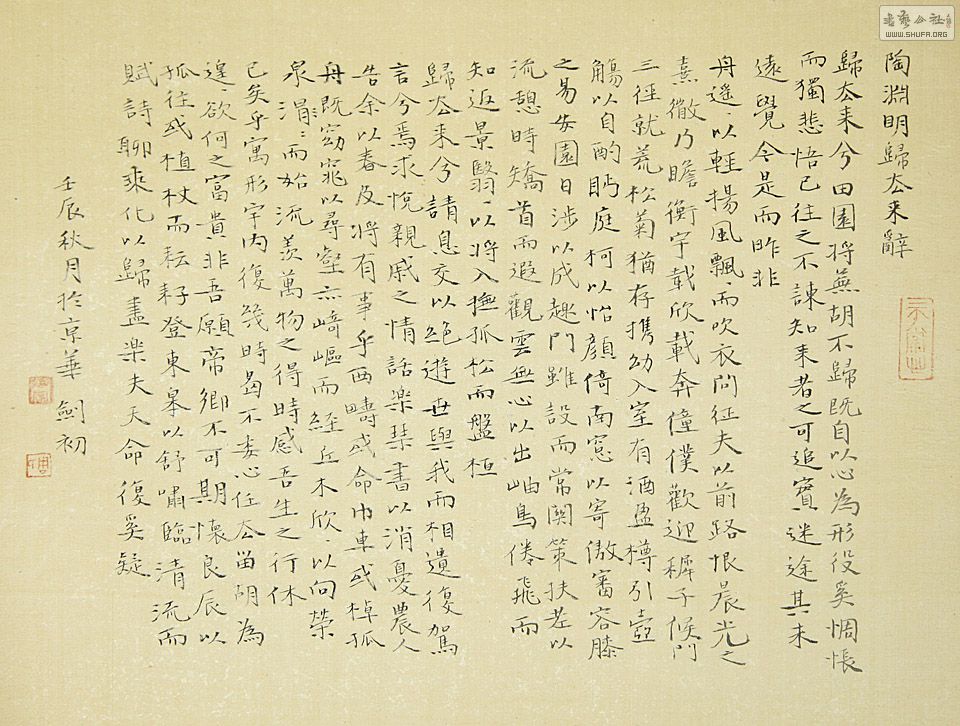 陶淵明歸去来辭
歸去来兮田園将無胡不歸既自以心為形役奚惆悵
而獨悲悟已往之不諫知来者之可追實迷途其未
遠覺今是而昨非
舟遥〻以輕揚風飄〻而吹衣問征夫以前路恨晨光之
熹微乃瞻衡宇載欣載奔僮僕歡迎穉子候門
三徑就荒松菊猶存携幼入室有酒盈樽引壺
觴以自酌眄庭柯以怡顏倚南窓以寄傲審容膝
之易安園日涉以成趣門雖設而常関策扶老以
流憩時矯首而遐觀雲無心以出岫鳥倦飛而
知返景翳〻以将入撫孤松而盤桓
歸去来兮請息交以絶遊世與我而相遺復駕
言兮焉求悅親戚之情話楽琴書以消憂農人
告余以春及将有事乎西疇或命巾車或棹孤
舟既窈窕以尋壑亦崎嶇而經丘木欣〻以向榮
泉涓〻而始流羨萬物之得時感吾生之行休
已矣乎寓形宇内復幾時曷不委心任去留胡為
遑〻欲何之富貴非吾願帝鄉不可期懷良辰以
孤往或植杖而耘耔登東皋以舒嘯臨清流而
賦詩聊乘化以歸盡楽夫天命復奚疑
壬辰秋月於京華 劍初
书艺公社
WWW.SHUFA.ORG